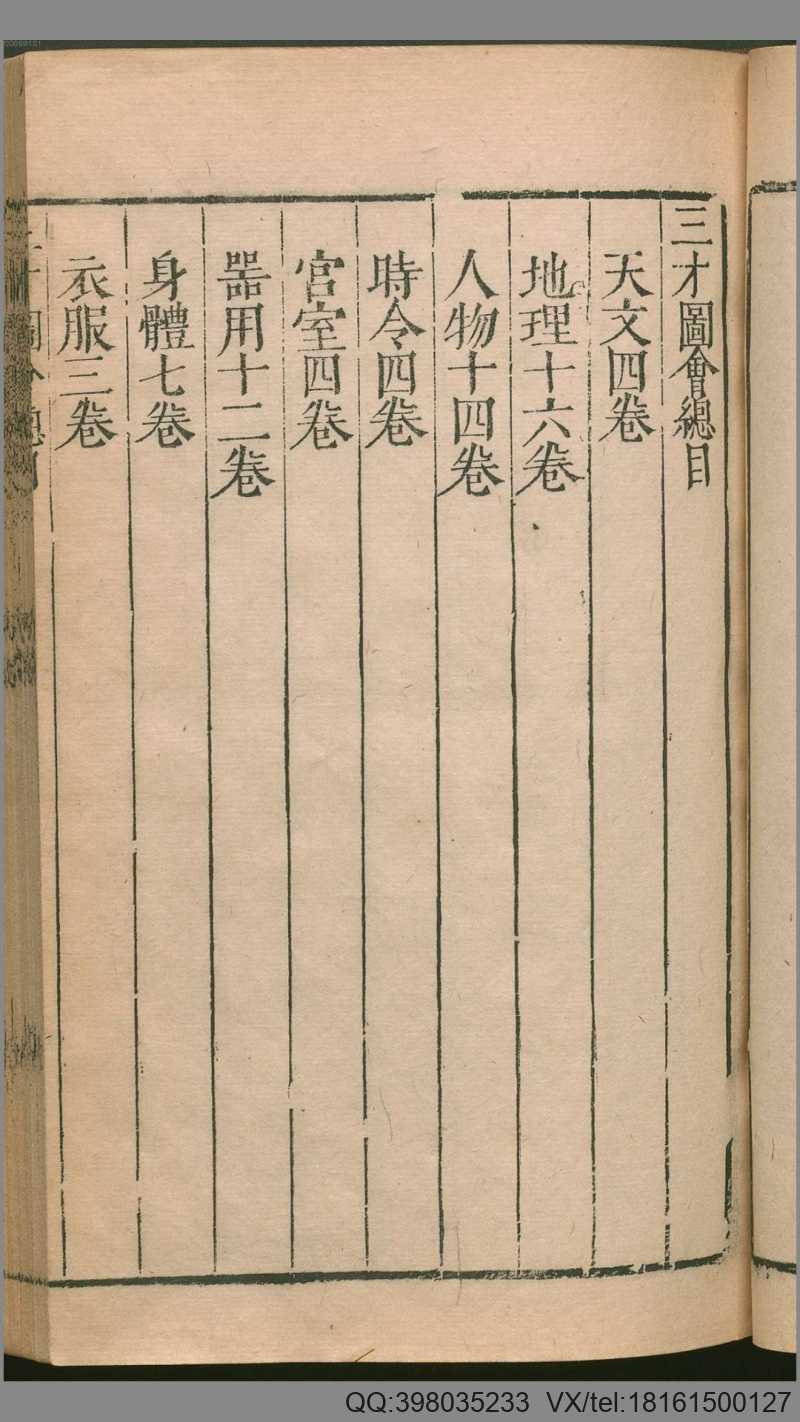 三才圖會總目
天文四卷
地理十六卷
人物十四卷
時令四卷
宮室四卷
器用十二卷
身體七卷
衣服三卷
QQ:398035233 VX/tel:18161500127